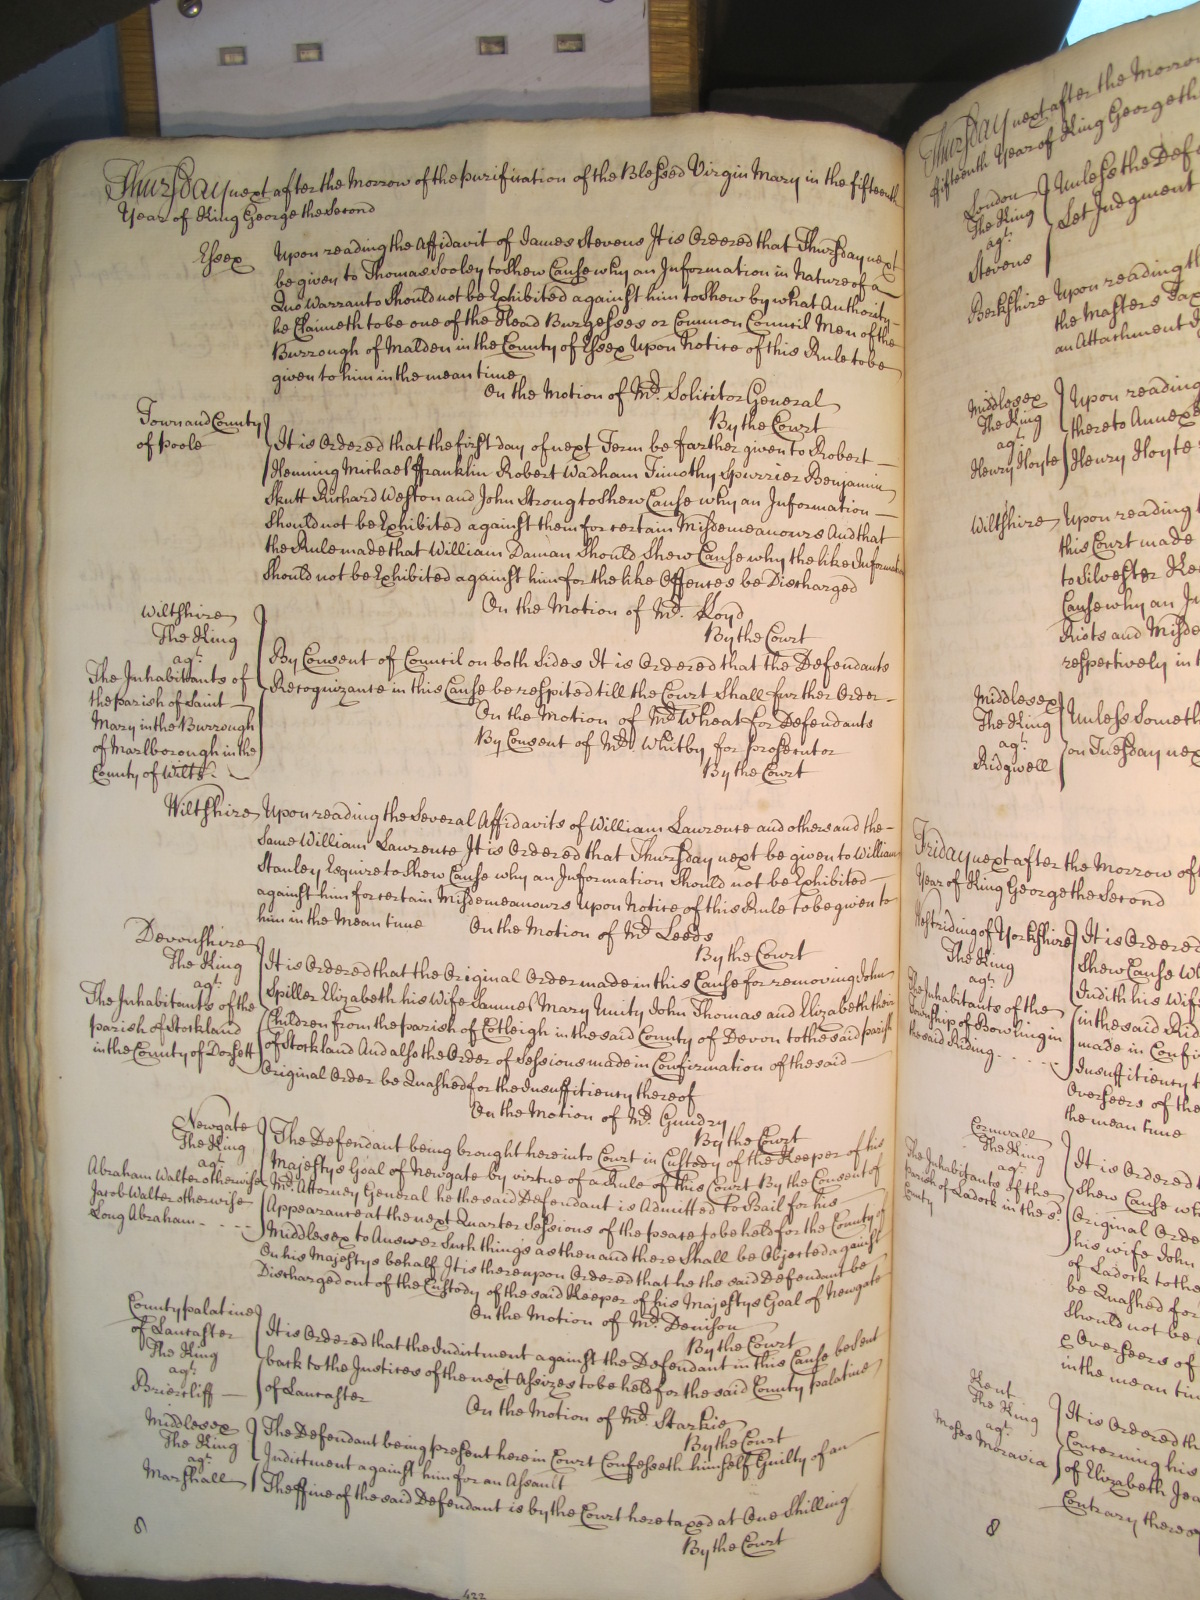 Thursday next after the Morrow of the purification of the Blessed Virgin Mary in the fifteenth
Year of King George the Second
Essex
Upon reading the Affidavit of James Stevens It is Ordered that Thursday next
be given to Thomas Sooley to shew Cause why an Information in Nature of a
Quo Warranto should not be Exhibited against him to shew by what Authority
he Claimeth to be one of the Head Burgesses or Common Council Men of the
Burrough of Malden in the County of Essex Upon Notice of this Rule to be
given to him in the mean time
On the Motion of Mr. Solicitor General
By the Court
Town and County
of Poole
It is Ordered that the first day of next Term be farther given to Robert
Henning Michael ffranklin Robert Wadham Timothy Spurrier Benjamin
Skutt Richard Weston and John Strong to shew Cause why an Information
should not be Exhibited against them for certain Misdemeanours And that
the Rule made that William Daman should shew Cause why the like Informat
should not be Exhibited against him for the like Offences be Discharged
On the Motion of Mr. Lloyd
By the Court
Wiltshire
The King
agt.
The Inhabitants of
the parish of Saint
Mary in the Burrough
of Marlborough in the
County of Wilts
By Consent of Council on both sides It is Ordered that the Defendants
Recognizance in this Cause be respited till the Court shall further Order
On the Motion of Mr. Wheat for Defendants
By Consent of Mr. Whitby for prosecutor
By the Court
Wiltshire
Upon reading the several Affidavits of William Lawrence and others and the
same William Lawrence It is Ordered that Thursday next be given to William
Stanley Esquire to shew Cause why an Information should not be Exhibited
against him for certain Misdemeanours Upon Notice of this Rule to be given to
him in the Mean time
On the Motion of Mr. Leeds
By the Court
Devonshire
The King
agt.
The Inhabitants of the
parish of Stockland
in the County of Dorsett
It is Ordered that the Original Order made in this Cause for removing John
Spiller Elizabeth his Wife Samuel Mary Unity John Thomas and Elizabeth their
Children from the parish of Cotleigh in the said County of Devon to the said parish
of Stockland And also the Order of Sessions made in Confirmation of the said
Original Order be Quashed for the Insufficiency thereof
On the Motion of Mr. Gundry
By the Court
Newgate
The King
agt.
Abraham Walter otherwise
Jacob Walter otherwise
Long Abraham
The Defendant being brought here into Court in Custody of the Keeper of his
Majestys Goal of Newgate by virtue of a Rule of this Court By the Consent of
Mr. Attorney General he the said Defendant is Admitted to Bail for his
Appearance at the next Quarter Sessions of the peace to be held for the County of
Middlesex to Answer Such things as then and there shall be Objected against
On his Majestys behalf It is thereupon Ordered that he the said Defendant be
Discharged out of the Custody of the said Keeper of his Majestys Goal of Newgate
On the Motion of Mr. Denison
By the Court
County palatine
of Lancaster
The King
agt.
Briercliff
It is Ordered that the Indictment against the Defendant in this Cause be sent
back to the Justices of the next Assizes to be held for the said County palatine
of Lancaster
On the Motion of Mr. Starkie
By the Court
Middlesex
The King
agt.
Marshall
The Defendant being present here in Court Confesseth himself Guilty of an
Indictment against him for an Assault
The ffine of the said Defendant is by the Court here taxed at One Shilling
By the Court
Thursday next after the Morrow
fifteenth Year of King George th
London
The King
agt.
Stevens
Unless the Def
Let Judgment
Berkshire
Upon reading th
the Masters Tax
an Attachment
Middlesex
The King
agt.
Henry Hoyte
Upon reading
thereto Annexe
Henry Hoyte
Wiltshire
Upon reading
this Court made
to Silvester
Cause why an In
Riots and Misde
respectively in
Middlesex
The King
agt.
Ridgwell
Unless Someth
on Tuesday nex
Friday next after the Morrow of
Year of King George the Second
Westriding of Yorkshire
The King
agt.
The Inhabitants of the
Township of Bowling in
the said Riding
It is Ordered
Shew Cause Wh
Judith his Wife
in the said Rid
made in Confir
Insufficiency t
Overseers of the
the mean time
Cornwall
The King
agt.
The Inhabitants of the
parish of Ladock in the sd.
County
It is Ordered
Shew Cause wh
Original Orde
his wife John
of Ladock to the
be Quashed for
should not be
Overseers of
in the mean tim
Kent
The King
agt.
Moses Moravia
It is Ordered th
Concerning his
of Elizabeth Jea
Contrary thereo
8
8
433